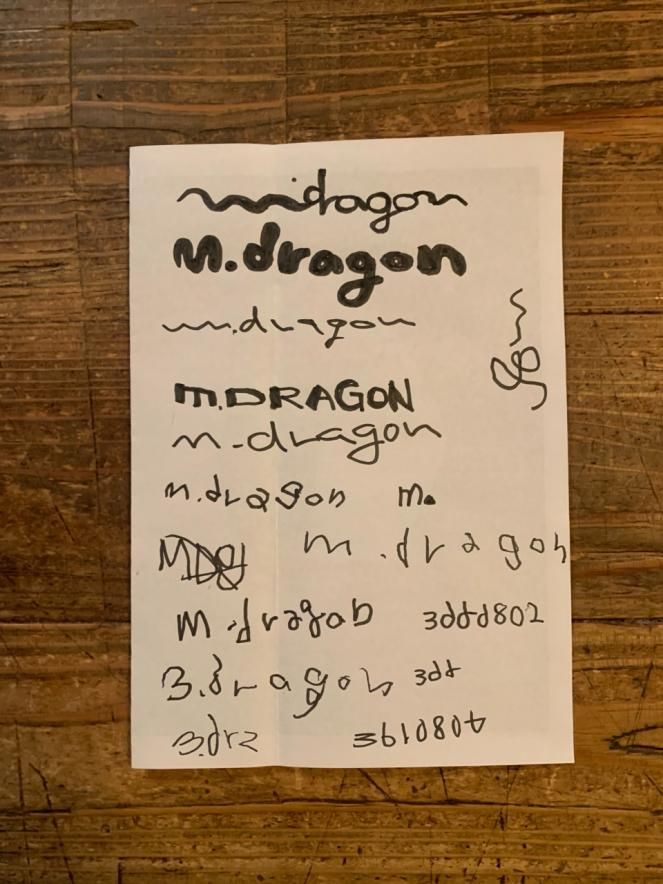 m.dragon
m.dragon
m.dragon
m.DRAGON
m-dragon
m.dragon m.
m.dragon
M.dragob 3dtd802
3.dragon 3dt
3.dr2 3610804